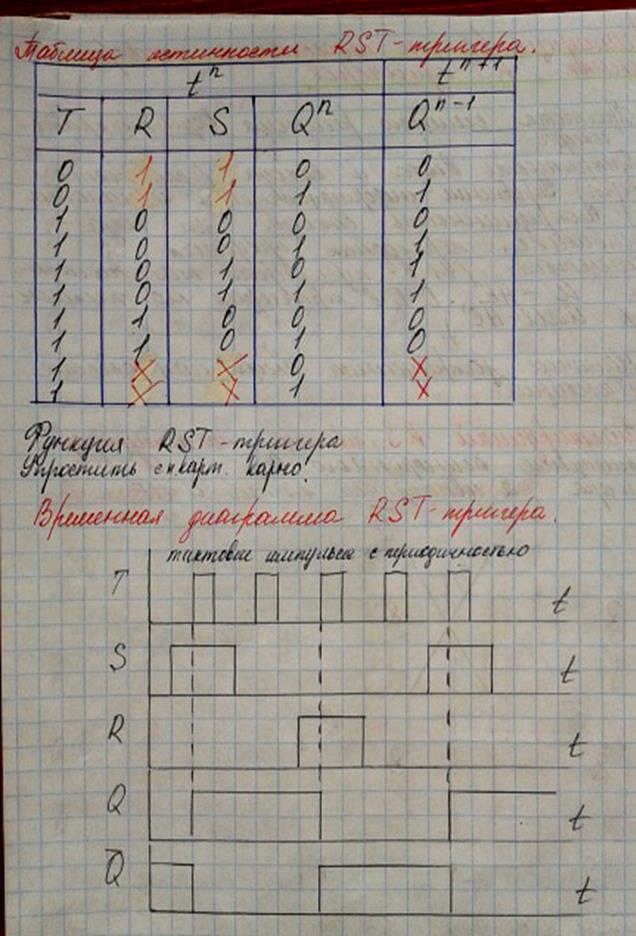 Таблица истинности RST-тригера.
tⁿ tⁿ⁺¹
T R S Qⁿ Qⁿ⁻¹
0 1 1 0 0
0 1 1 1 1
1 0 0 0 0
1 0 0 1 1
1 0 1 0 1
1 0 1 1 1
1 1 0 0 0
1 1 0 1 0
1 X X 0 X
1 X X 1 X
Функция RST-тригера
Упростить с п. карт. карно!
Временная диаграмма RST-тригера.
тактовые импульсы с периодичностью
T t
S t
R t
Q t
Q̅ t